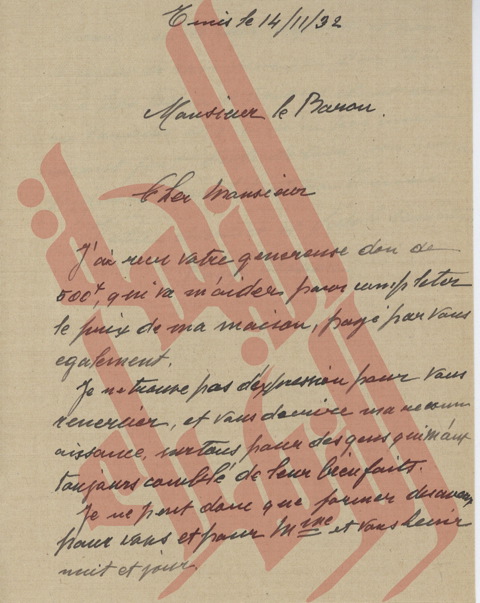 Tunis le 14/11/32
Monsieur le Baron.
Cher Monsieur
J'ai reçu votre genereuse don de
500f, qui va m'aider pour completer
le prix de ma maison, payé par vous
egalement.
Je ne trouve pas d'expression pour vous
remercier, et vous decrire ma reconn
aissance, surtous pour des gens qui m'ont
toujours comblé de leur bienfaits.
Je ne peut donc que former des voeux
pour vous et pour Mme et vous benir
nuit et jour.